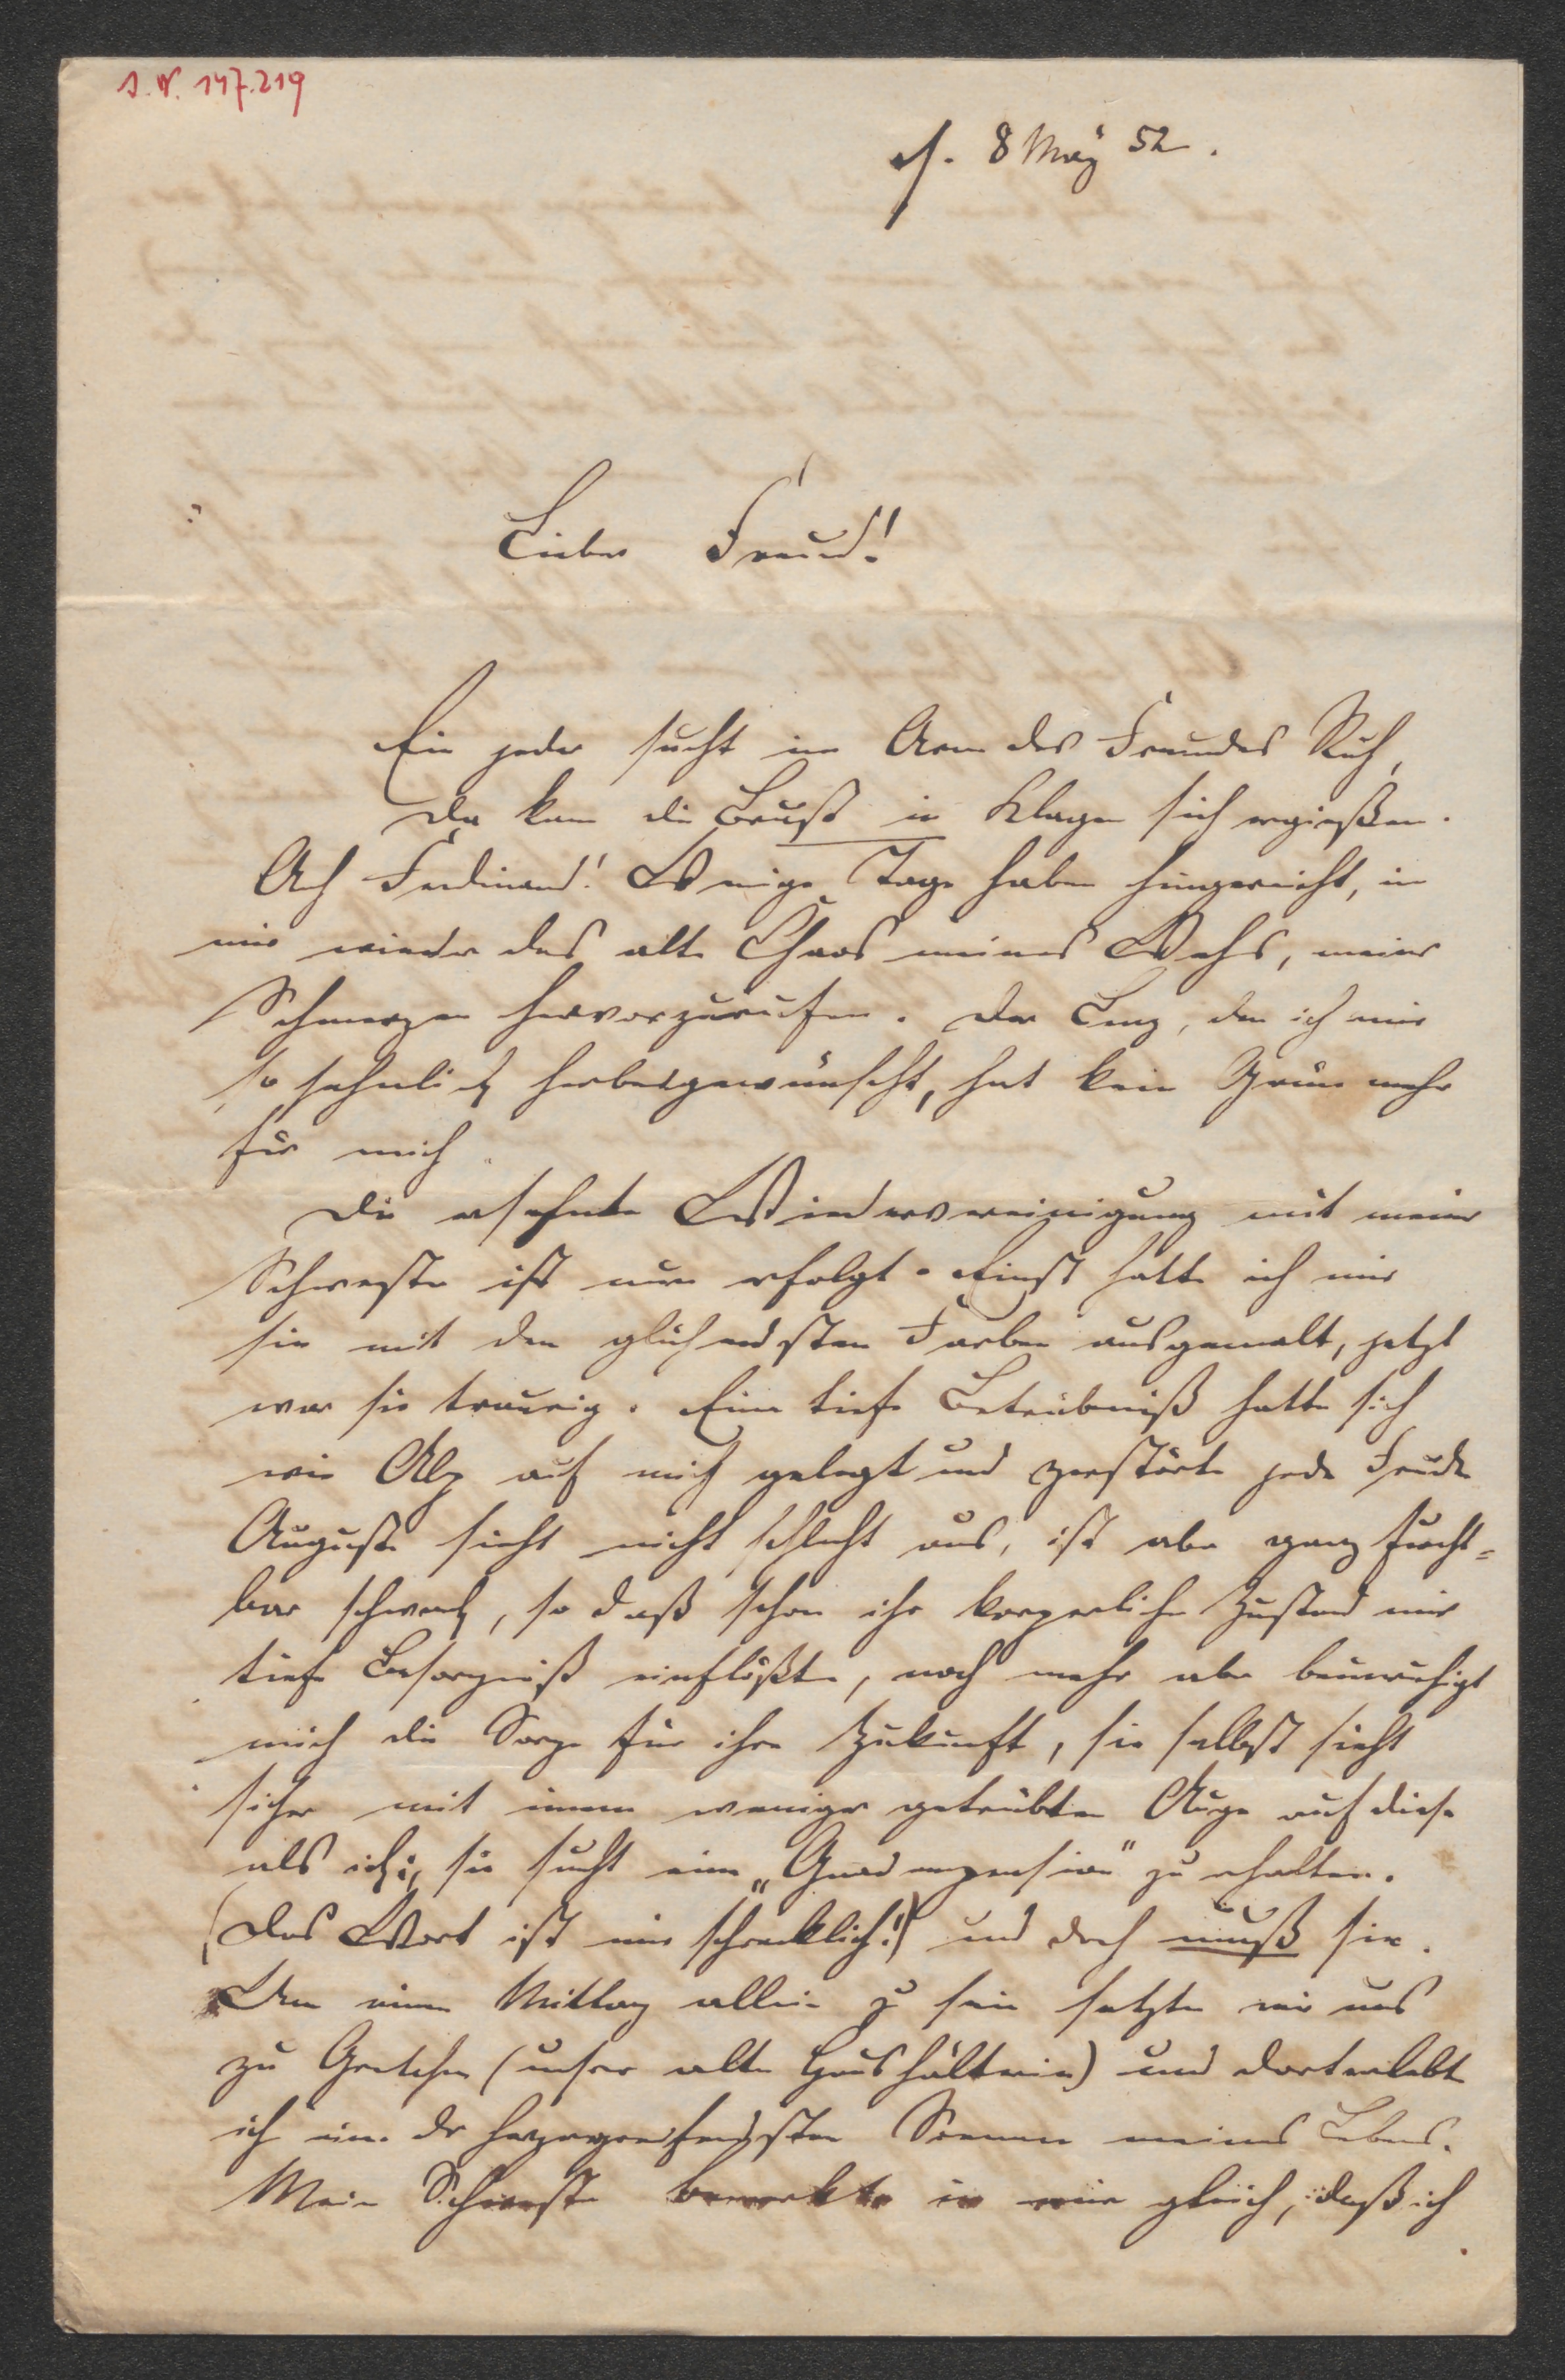 J.N. 147.219
8 May 52.
Lieber Freund!
Ein jeder sucht im Arm des Freundes Ruh,
Da kann die Brust in Klagen sich ergießen.
Ach Ferdinand! Wenige Tage haben hingereicht, in
mir wieder das alte Chaos meines Wehs, meiner
Schmerzen hervorzurufen. Der Lenz, den ich mir
so sehnlich herbeigewünscht, hat kein Grün mehr
für mich
Die ersehnte Wiedervereinigung mit meiner
Schwester ist nun erfolgt. Einst hatte ich mir
sie mit den glühendsten Farben ausgemalt, jetzt
war sie traurig. Eine tiefe Betrübniß hatte sich
wie Alp auf mich gelegt und zerstörte jede Freude
Auguste sieht nicht schlecht aus, ist aber ganz furcht=
bar schwach, so daß schon ihr körperlicher Zustand mir
tiefe Besorgniß einflößte, noch mehr aber beunruhigt
mich die Sorge für ihre Zukunft, sie selbst sieht
sicher mit einem weniger getrübten Auge auf diese
als ich; sie sucht eine „Gnadenpension" zu erhalten.
(Das Wort ist mir schrecklich!) und doch muß sie.
Um einen Mittag allein zu sein setzten wir uns
zu Gretchen (unser alte Haushälterin) und dort erlebte
ich eine der herzergreifendsten Scenen meines Lebens.
Meine Schwester bemerkte in mir gleich, daß ich